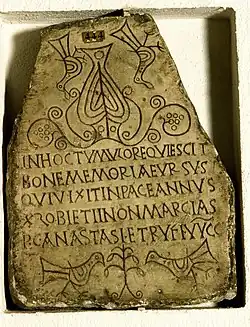 INHOCTVMVLOREQVIESCIT
BONEMEMORIAEVRSVS
QVIVIXITINPACEANNVS
XXOBIETIINONMARCIAS
P̅CANASTASIETRVFIVVCC